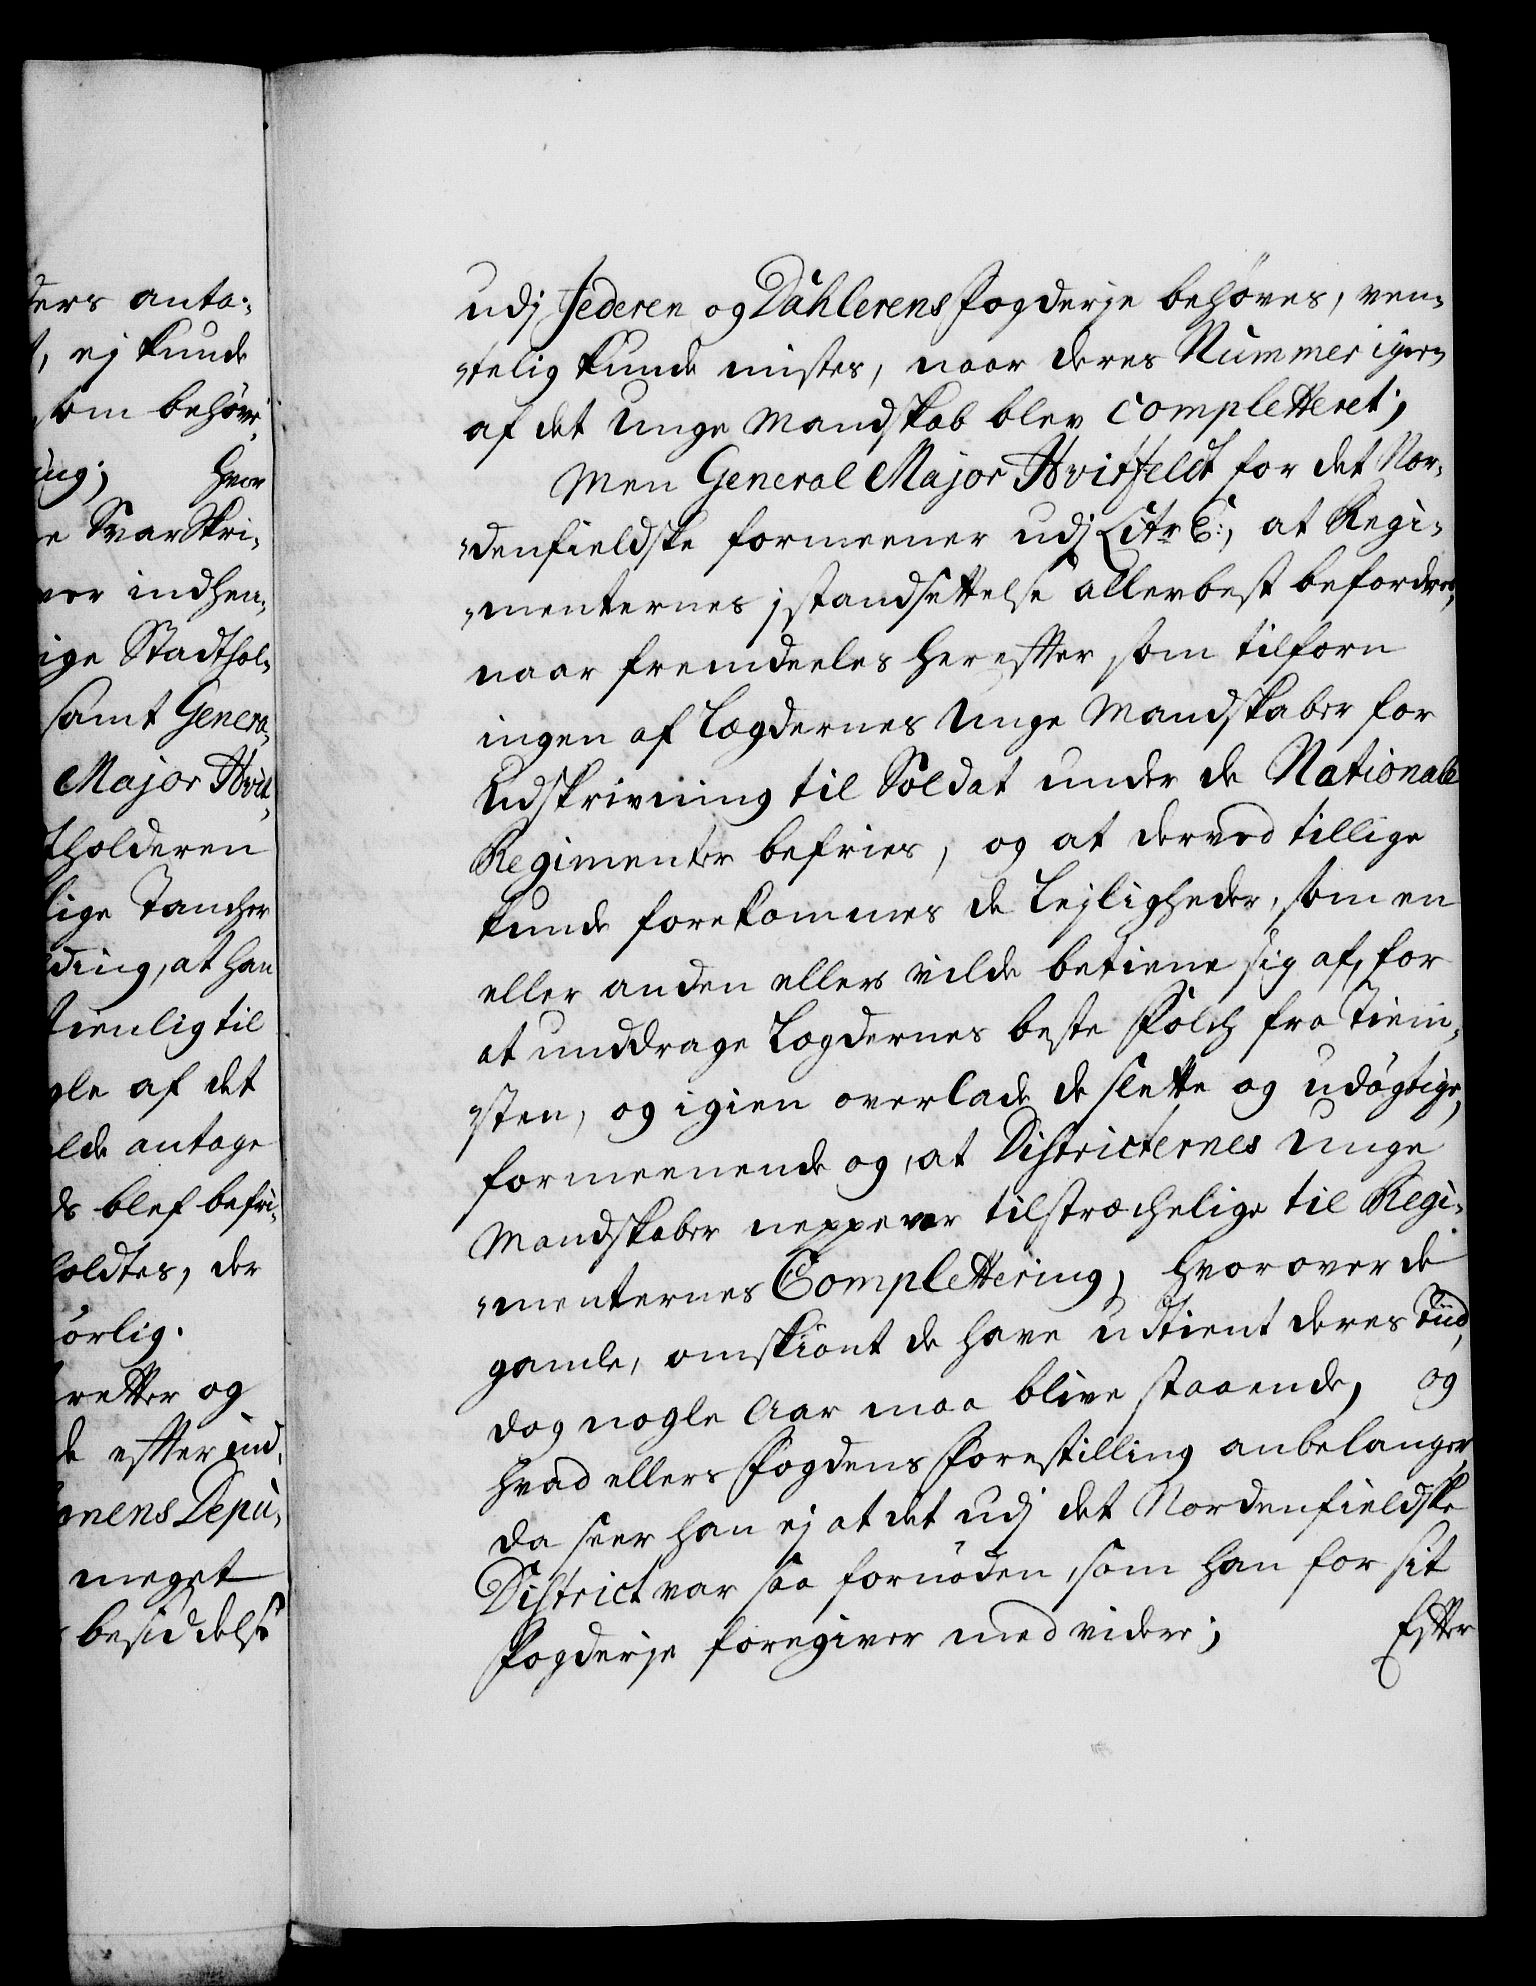 ders anta-
, ej kunde
som behøve
ing; hvor
e Svar Skri-
ver indhen-
ige Stadthol-
samt Genera-
Major Hvit-
tholderen
lige Tancher
ding, at han
tienlig til
gle af det
lde antage
ds blef befri-
holdtes, der
ørlig.
retter og
de efter ind-
mens Depu-
meget
besiddelse
udj Jederen og Dahlerens Fogderje behøves, ven-
telig kunde mistes, naar deres Nummer igien
af det Unge Mandskab blev completteret;
Men General Major Hvitfeldt for det Nor-
denfieldske formeener udj Litr C:, at Regi-
menternes jstandsettelse allerbest befordres,
naar fremdeeles herefter, som tilforn
ingen af Lægdernes Unge Mandskaber for
Udskrivning til Soldat under de Nationale
Regimenter befries, og at derved tillige
kunde forekommes de Lejligheder, som en
eller anden ellers vilde betiene sig af, for
at unddrage Lægdernes beste Folch fra Tieni-
sten, og igien overlade de slette og udøgtige,
formeenende og, at Districternes Unge
Mandskaber neppe var tilstræchelige til Regi-
menternes Complettering, hvorover de
gamle, omskiønt de have udtient deres Tiid,
dog nogle Aar maa blive staaende, og
hvad ellers Fogdens Forestilling anbelanger
da seer han ej at det udj det Nordenfieldske
District var saa fornøden, som han for sit
Fogderje foregiver med videre; Efter